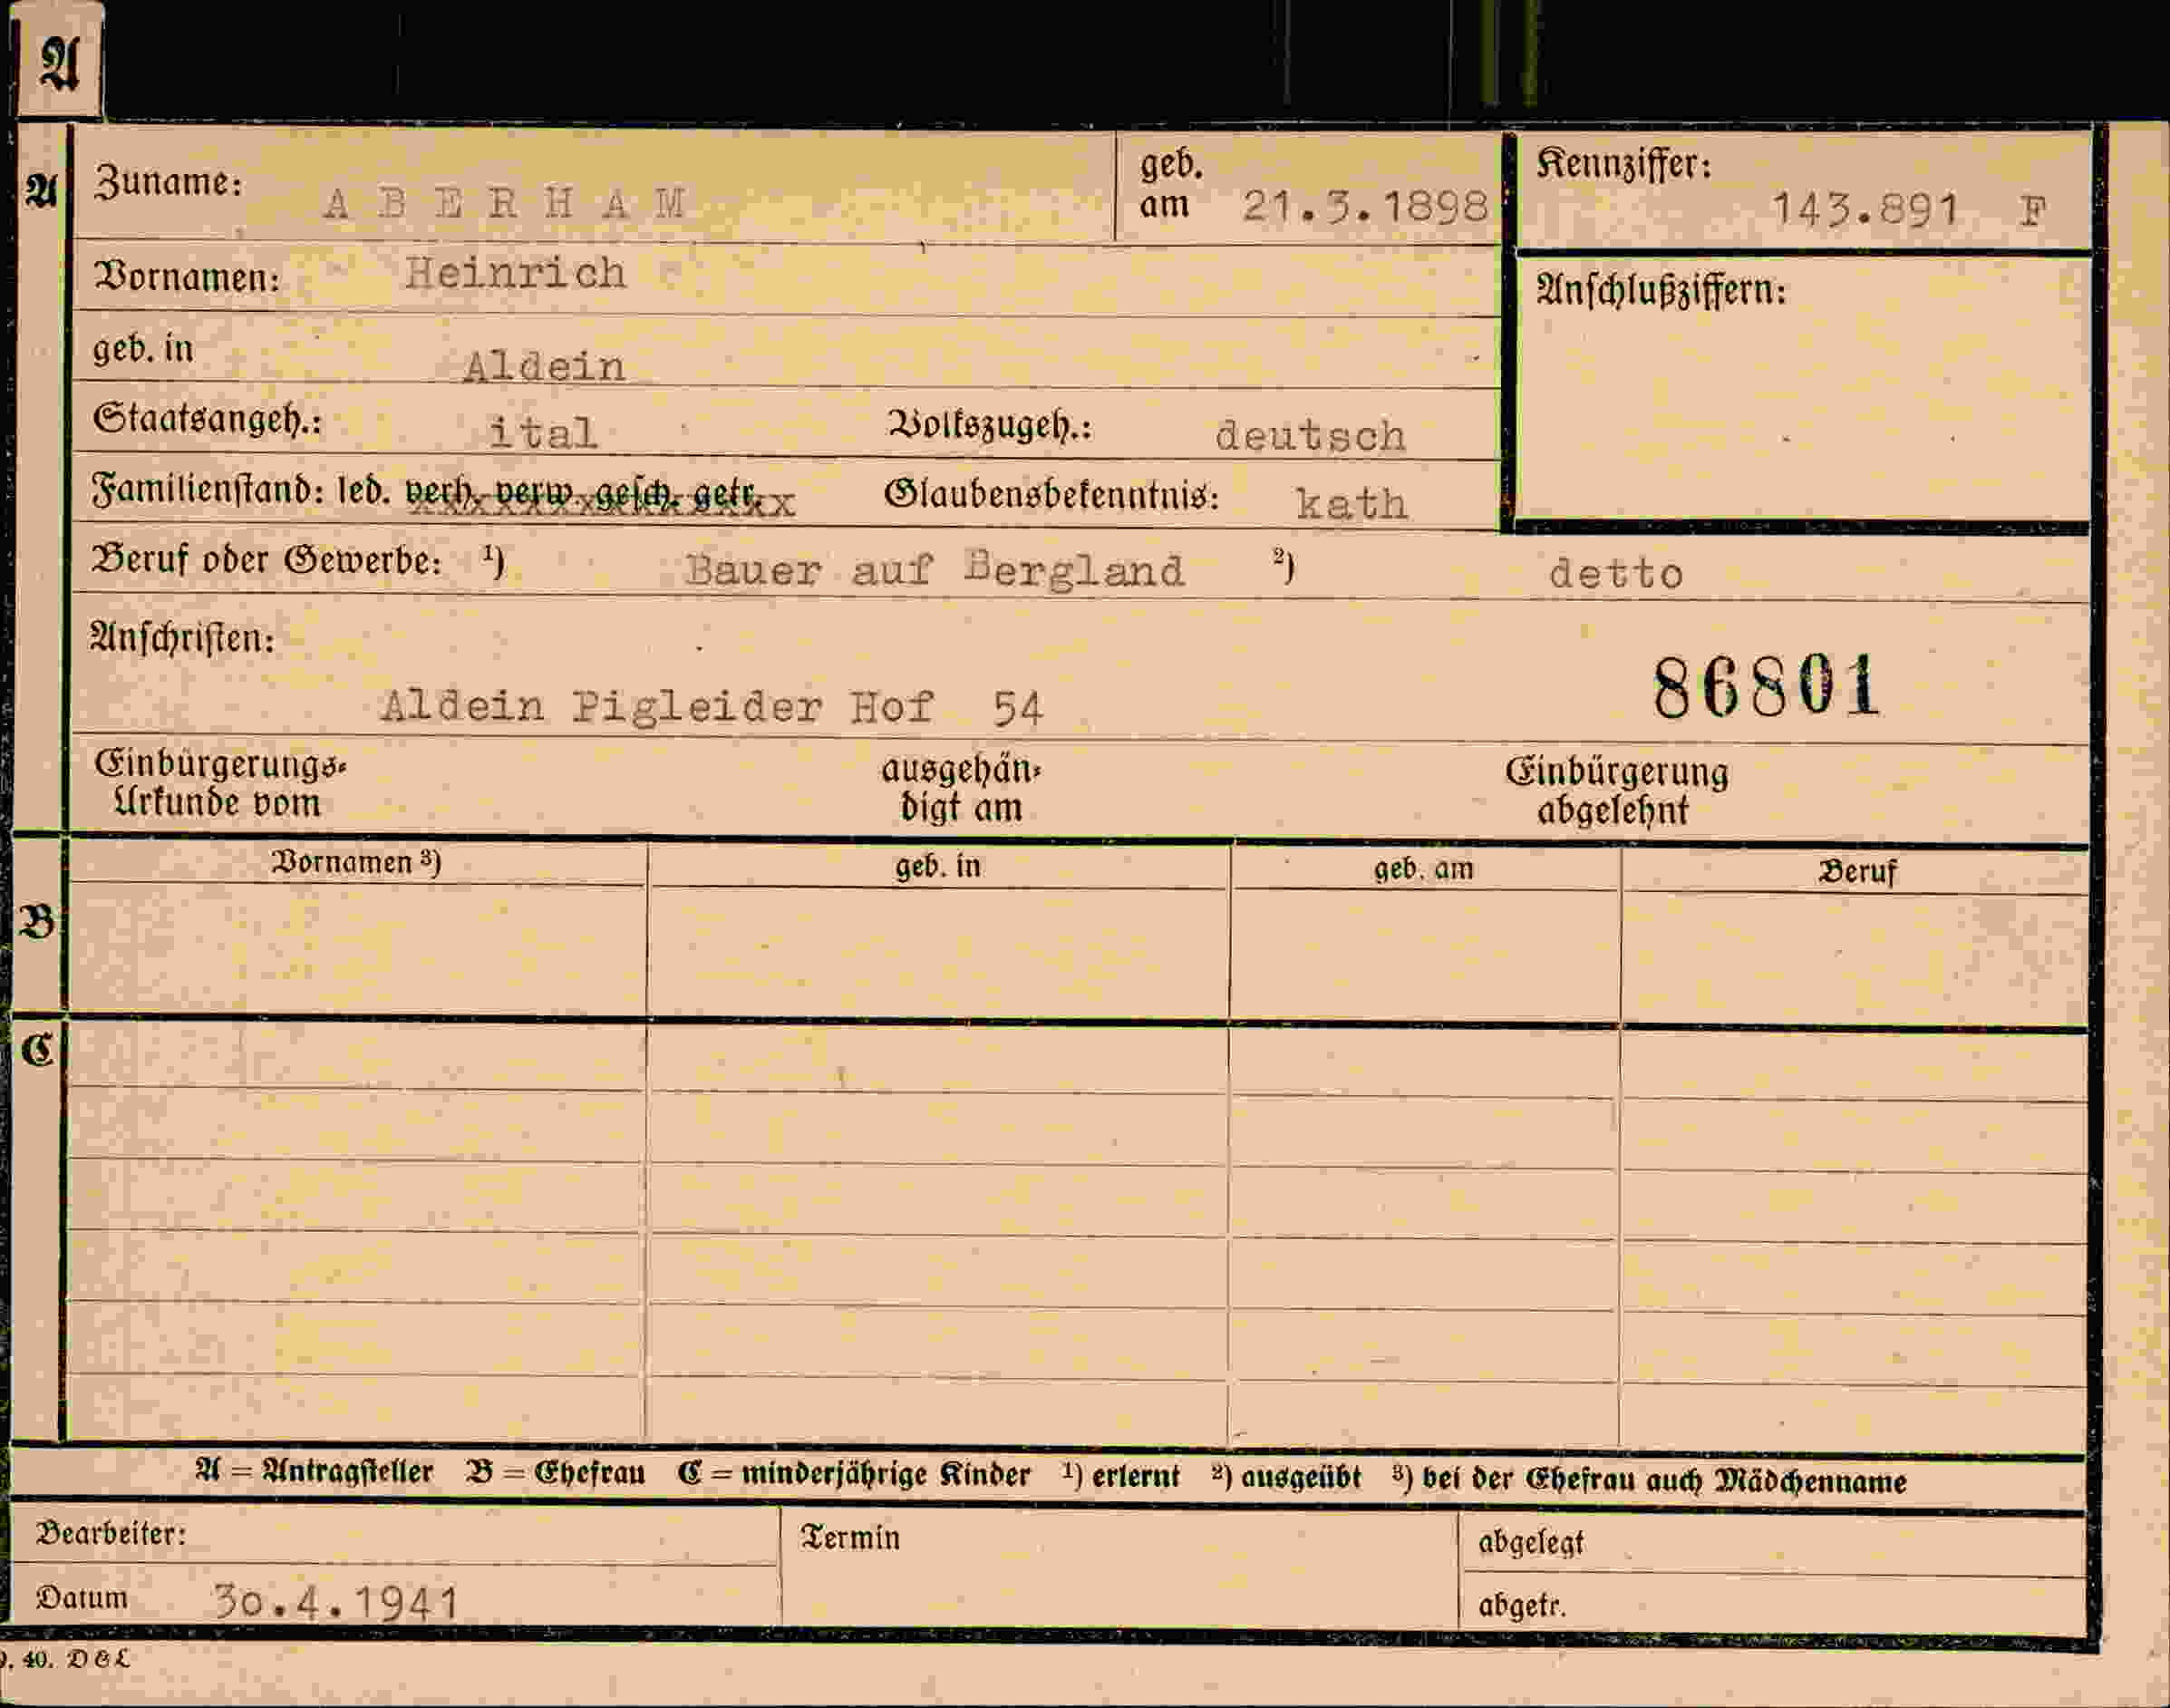 A
A Zuname: ABERHAM geb. am 21.3.1898 Kennziffer: 143.891 F
Vornamen: Heinrich Anschlußziffern:
geb. in Aldein
Staatsangeh.: ital Volkszugeh.: deutsch
Familienstand: led. verh. verw. gesch. getr. Glaubensbekenntnis: kath
Beruf oder Gewerbe: 1) Bauer auf Bergland 2) detto
Anschriften:
86801
Aldein Pigleider Hof 54
Einbürgerungs- ausgehän- Einbürgerung
Urkunde vom digt am abgelehnt
Vornamen 3) geb. in geb. am Beruf
B
C
A = Antragsteller B = Ehefrau C = minderjährige Kinder 1) erlernt 2) ausgeübt 3) bei der Ehefrau auch Mädchenname
Bearbeiter: Termin abgelegt
Datum 30.4.1941 abgetr.
40. D & L